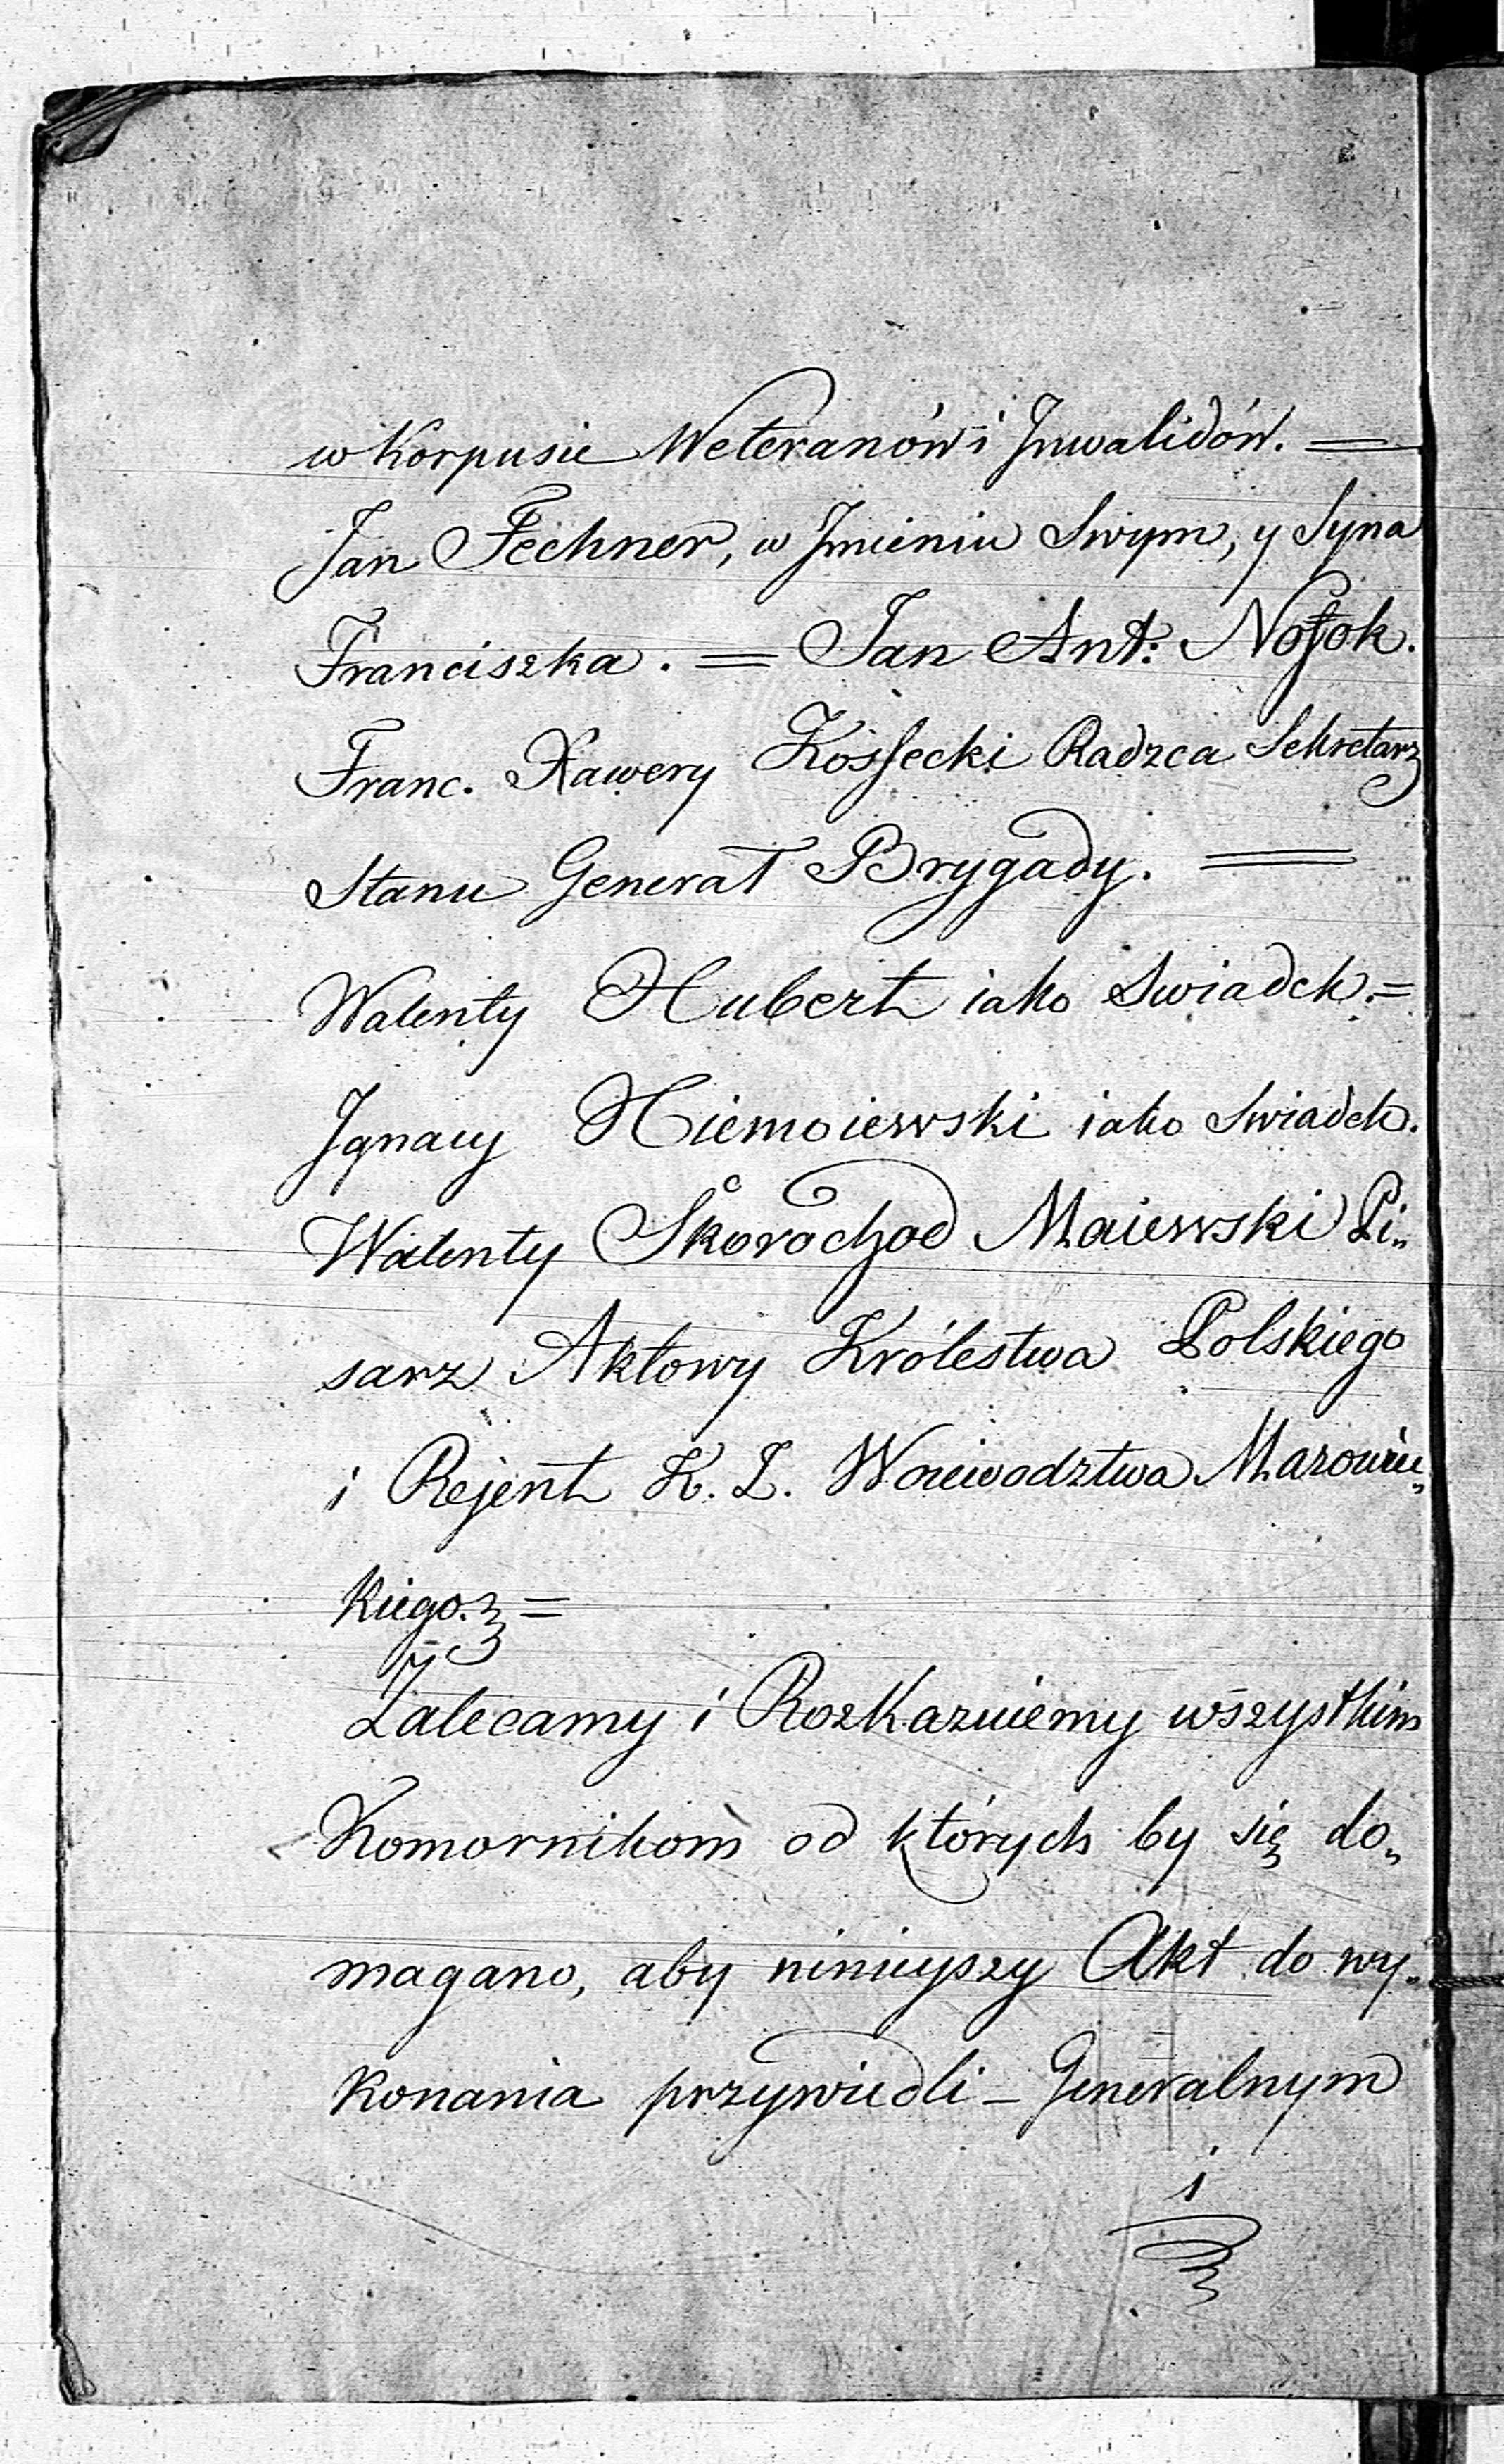 w Korpusie Weteranów i Inwalidów. =
Jan Fechner, w Imieniu Swym, y Syna
Franciszka. = Jan Ant: Nosok.
Franc. Xawery Kossecki Radzca Sekretarz
Stanu Generał Brygady. =
Walenty Hubert iako Swiadek. =
Ignacy Niemoiewski iako Swiadek.
Walenty Skorochod Maiewski Pi„
sarz Aktowy Królestwa Polskiego
i Rejent K. Z. Woiewodztwa Mazowiec„
kiego. =
Zalecamy i Rozkazuiemy wszystkim
Komornikom od których by się do„
magano, aby ninieyszy Akt do wy„
konania przywiedli – Generalnym
i